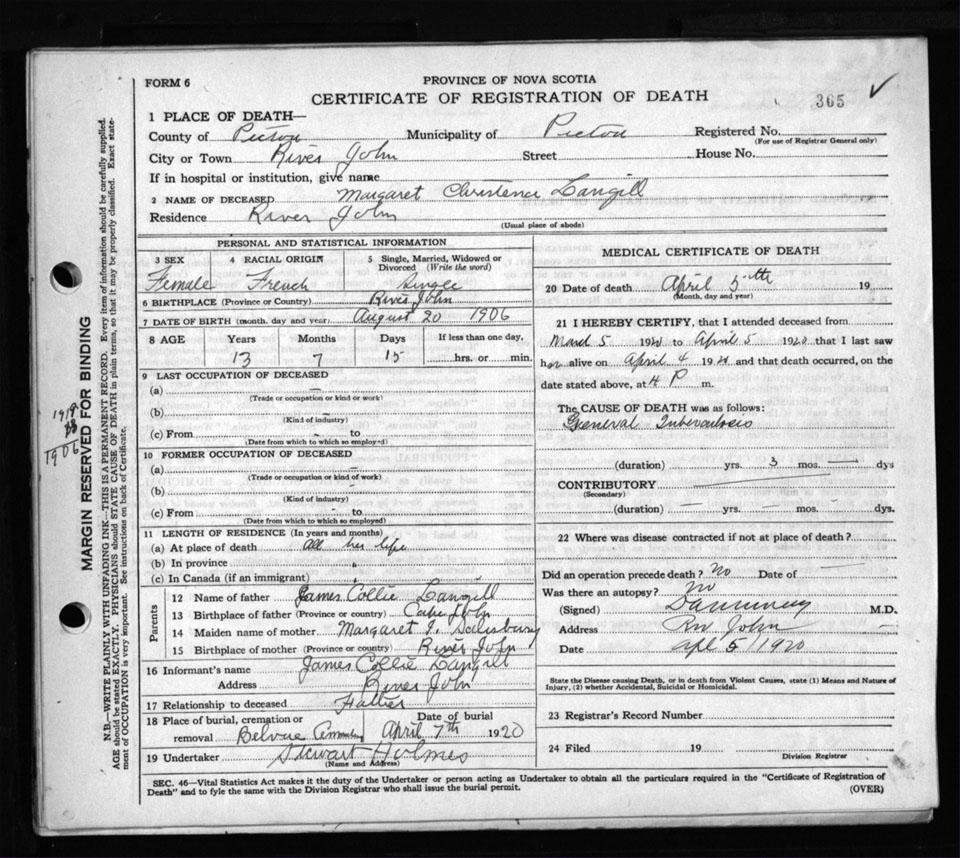 FORM 6
PROVINCE OF NOVA SCOTIA
CERTIFICATE OF REGISTRATION OF DEATH
365
1 PLACE OF DEATH—
County of Pictou Municipality of Pictou Registered No.
(For use of Registrar General only)
City or Town River John Street House No.
If in hospital or institution, give name
2 NAME OF DECEASED Margaret Christena Langill
Residence River John
(Usual place of abode)
PERSONAL AND STATISTICAL INFORMATION
3 SEX 4 RACIAL ORIGIN 5 Single, Married, Widowed or Divorced (Write the word)
Female French Single
6 BIRTHPLACE (Province or Country) River John
7 DATE OF BIRTH (month, day and year) August 20 1906
8 AGE Years Months Days If less than one day,
13 7 15 hrs. or min.
9 LAST OCCUPATION OF DECEASED
(a) —
(Trade or occupation or kind or work)
(b) —
(Kind of industry)
(c) From - to
(Date from which to which so employed)
10 FORMER OCCUPATION OF DECEASED
(a) —
(Trade or occupation or kind or work)
(b) —
(Kind of industry)
(c) From - to
(Date from which to which so employed)
11 LENGTH OF RESIDENCE (In years and months)
(a) At place of death All her life
(b) In province "
(c) In Canada (if an immigrant) "
Parents
12 Name of father James Collie Langill
13 Birthplace of father (Province or country) Cape John
14 Maiden name of mother Margaret J. Salisbury
15 Birthplace of mother (Province or country) River John
16 Informant's name James Collie Langill
Address River John
17 Relationship to deceased Father
18 Place of burial, cremation or removal Date of burial
Belvue Cemetery April 7th 1920
19 Undertaker Stewart Holmes
(Name and Address)
MEDICAL CERTIFICATE OF DEATH
20 Date of death April 5th 19
(Month, day and year)
21 I HEREBY CERTIFY, that I attended deceased from
March 5 1920 to April 5 1920 that I last saw
her alive on April 4 1920 and that death occurred, on the
date stated above, at 4 P m.
The CAUSE OF DEATH was as follows:
General Tuberculosis
(duration) — yrs. 3 mos. — dys
CONTRIBUTORY
(Secondary)
(duration) — yrs. — mos. — dys.
22 Where was disease contracted if not at place of death?
Did an operation precede death? No Date of —
Was there an autopsy? No
(Signed) M.D.
Address Riv John
Date Apl 5/1920
State the Disease causing Death, or in death from Violent Causes, state (1) Means and Nature of
Injury, (2) whether Accidental, Suicidal or Homicidal.
23 Registrar's Record Number
24 Filed 19
Division Registrar
SEC. 46—Vital Statistics Act makes it the duty of the Undertaker or person acting as Undertaker to obtain all the particulars required in the "Certificate of Registration of
Death" and to fyle the same with the Division Registrar who shall issue the burial permit. (OVER)
MARGIN RESERVED FOR BINDING
N.B.—WRITE PLAINLY WITH UNFADING INK—THIS IS A PERMANENT RECORD. Every item of information should be carefully supplied.
AGE should be stated EXACTLY. PHYSICIANS should STATE CAUSE OF DEATH in plain terms, so that it may be properly classified. Exact state-
ment of OCCUPATION is very important. See instructions on back of Certificate.
1906